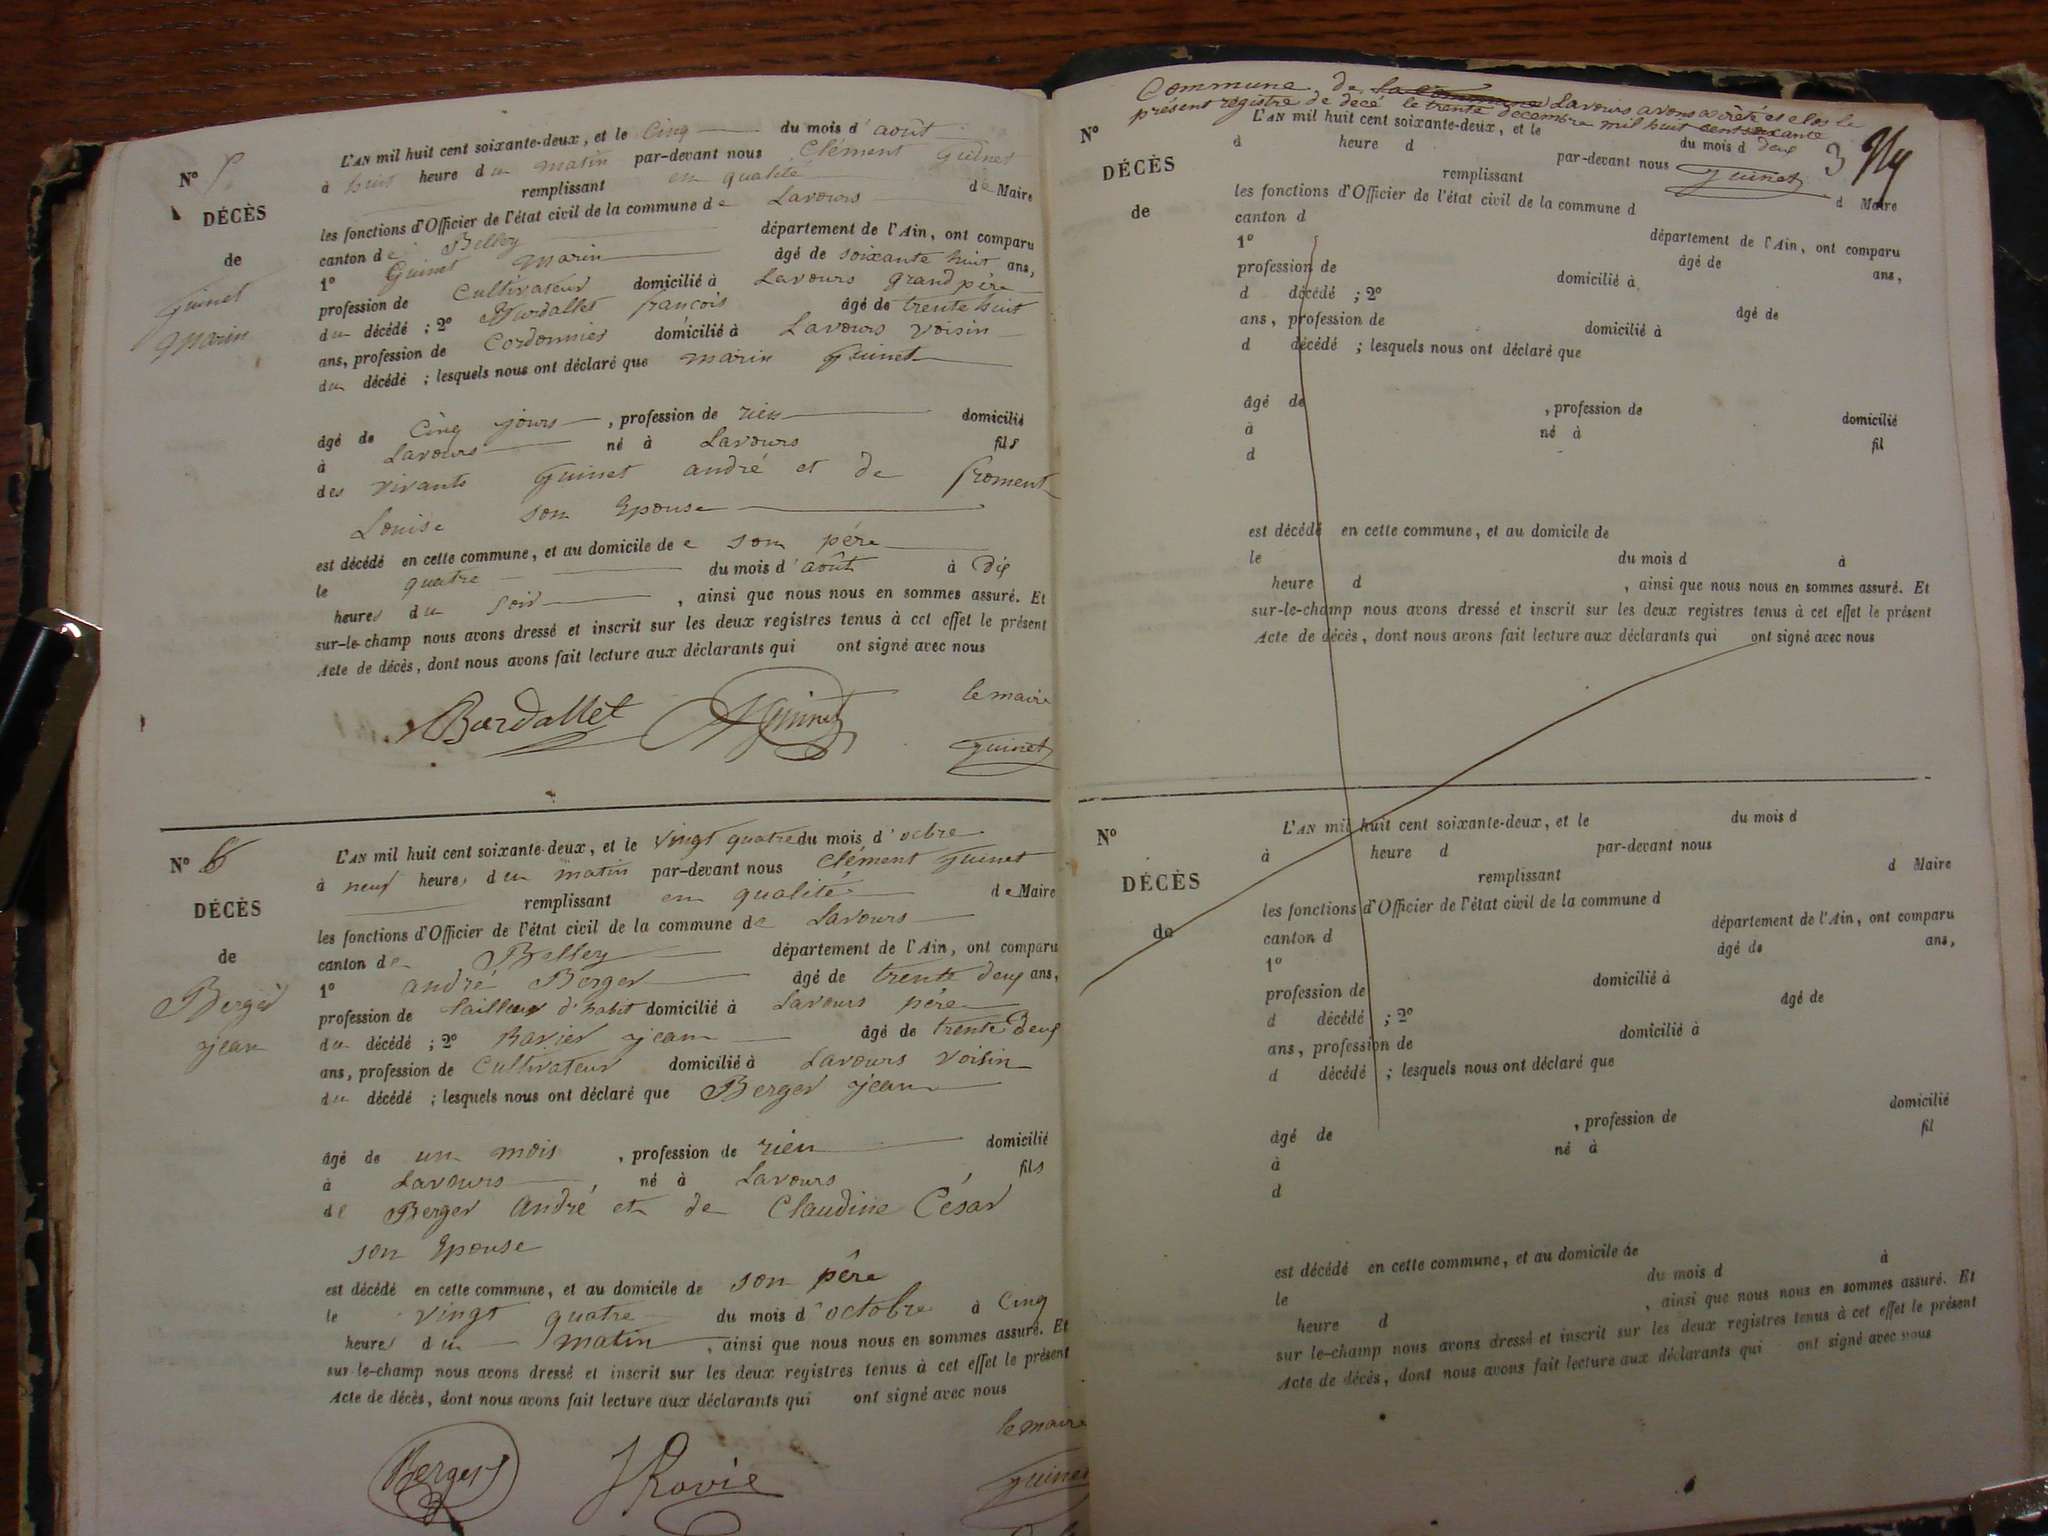 Nº 5
DÉCÈS
de
Guinet
Marin
L'AN mil huit cent soixante-deux, et le Cinq du mois d'août
à huit heure du matin par-devant nous Clément Guinet
remplissant en qualité de Maire
les fonctions d'Officier de l'état civil de la commune de Lavours
canton de Belley département de l'Ain, ont comparu
1º Guinet Marin âgé de soixante huit ans,
profession de Cultivateur domicilié à Lavours grand père
du décédé ; 2º Bardallet francois âgé de trente huit
ans, profession de Cordonnier domicilié à Lavours voisin
du décédé ; lesquels nous ont déclaré que marin Guinet
âgé de Cinq jours, profession de rien domicilié
à Lavours né à Lavours fils
des vivants Guinet andré et de froment
Louise son Epouse
est décédé en cette commune, et au domicile de son père
le quatre du mois d'août à dix
heures du soir, ainsi que nous nous en sommes assuré. Et
sur-le-champ nous avons dressé et inscrit sur les deux registres tenus à cet effet le présent
Acte de décès, dont nous avons fait lecture aux déclarants qui ont signé avec nous
le maire
Bardallet Guinet
Guinet
Nº 6
DÉCÈS
de
Berger
jean
L'AN mil huit cent soixante-deux, et le vingt quatre du mois d'octbre
à neuf heures du matin par-devant nous Clément Guinet
remplissant en qualité de Maire
les fonctions d'Officier de l'état civil de la commune de Lavours
canton de Belley département de l'Ain, ont comparu
1º andré Berger âgé de trente deux ans,
profession de tailleur d'habit domicilié à Lavours père
du décédé ; 2º Ravier jean âgé de trente Deux
ans, profession de Cultivateur domicilié à Lavours voisin
du décédé ; lesquels nous ont déclaré que Berger jean
âgé de un mois, profession de rien domicilié
à Lavours, né à Lavours fils
de Berger André et de Claudine César
son Epouse
est décédé en cette commune, et au domicile de son père
le vingt quatre du mois d'octobre à Cinq
heures du matin, ainsi que nous nous en sommes assuré. Et
sur-le-champ nous avons dressé et inscrit sur les deux registres tenus à cet effet le présent
Acte de décès, dont nous avons fait lecture aux déclarants qui ont signé avec nous
le maire
Berger J Ravie
Guinet
Commune de Lavours avons arrêté et clos le
présent registre de decé le trente décembre mil huit cent soixante
deux
Guinet
3
Nº
DÉCÈS
de
L'AN mil huit cent soixante-deux, et le du mois d
d heure d par-devant nous
remplissant d Maire
les fonctions d'Officier de l'état civil de la commune d
canton d département de l'Ain, ont comparu
1º âgé de ans,
profession de domicilié à
d décédé ; 2º âgé de
ans, profession de domicilié à
d décédé ; lesquels nous ont déclaré que
âgé de , profession de domicilié
à né à fil
d
est décédé en cette commune, et au domicile de
le du mois d à
heure d , ainsi que nous nous en sommes assuré. Et
sur-le-champ nous avons dressé et inscrit sur les deux registres tenus à cet effet le présent
Acte de décès, dont nous avons fait lecture aux déclarants qui ont signé avec nous
Nº
DÉCÈS
de
L'AN mil huit cent soixante-deux, et le du mois d
à heure d par-devant nous
remplissant d Maire
les fonctions d'Officier de l'état civil de la commune d
canton d département de l'Ain, ont comparu
1º âgé de ans,
profession de domicilié à
d décédé ; 2º âgé de
ans, profession de domicilié à
d décédé ; lesquels nous ont déclaré que
âgé de , profession de domicilié
à né à fil
d
est décédé en cette commune, et au domicile de
le du mois d à
heure d , ainsi que nous nous en sommes assuré. Et
sur le-champ nous avons dressé et inscrit sur les deux registres tenus à cet effet le présent
Acte de décès, dont nous avons fait lecture aux déclarants qui ont signé avec nous